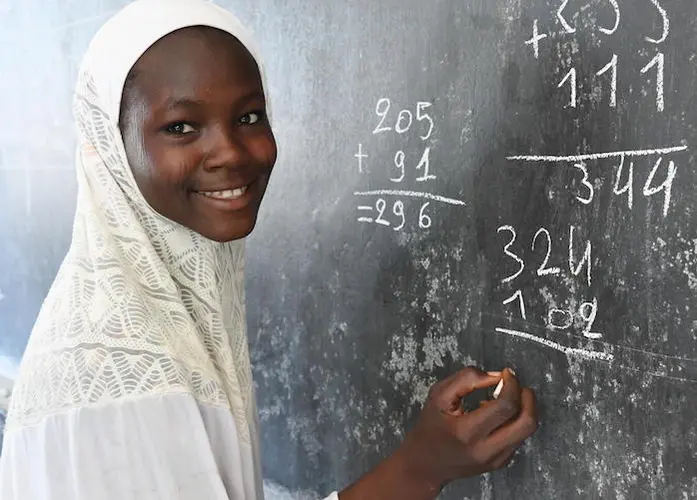 205
+ 91
=296
+ 111
344
324
102